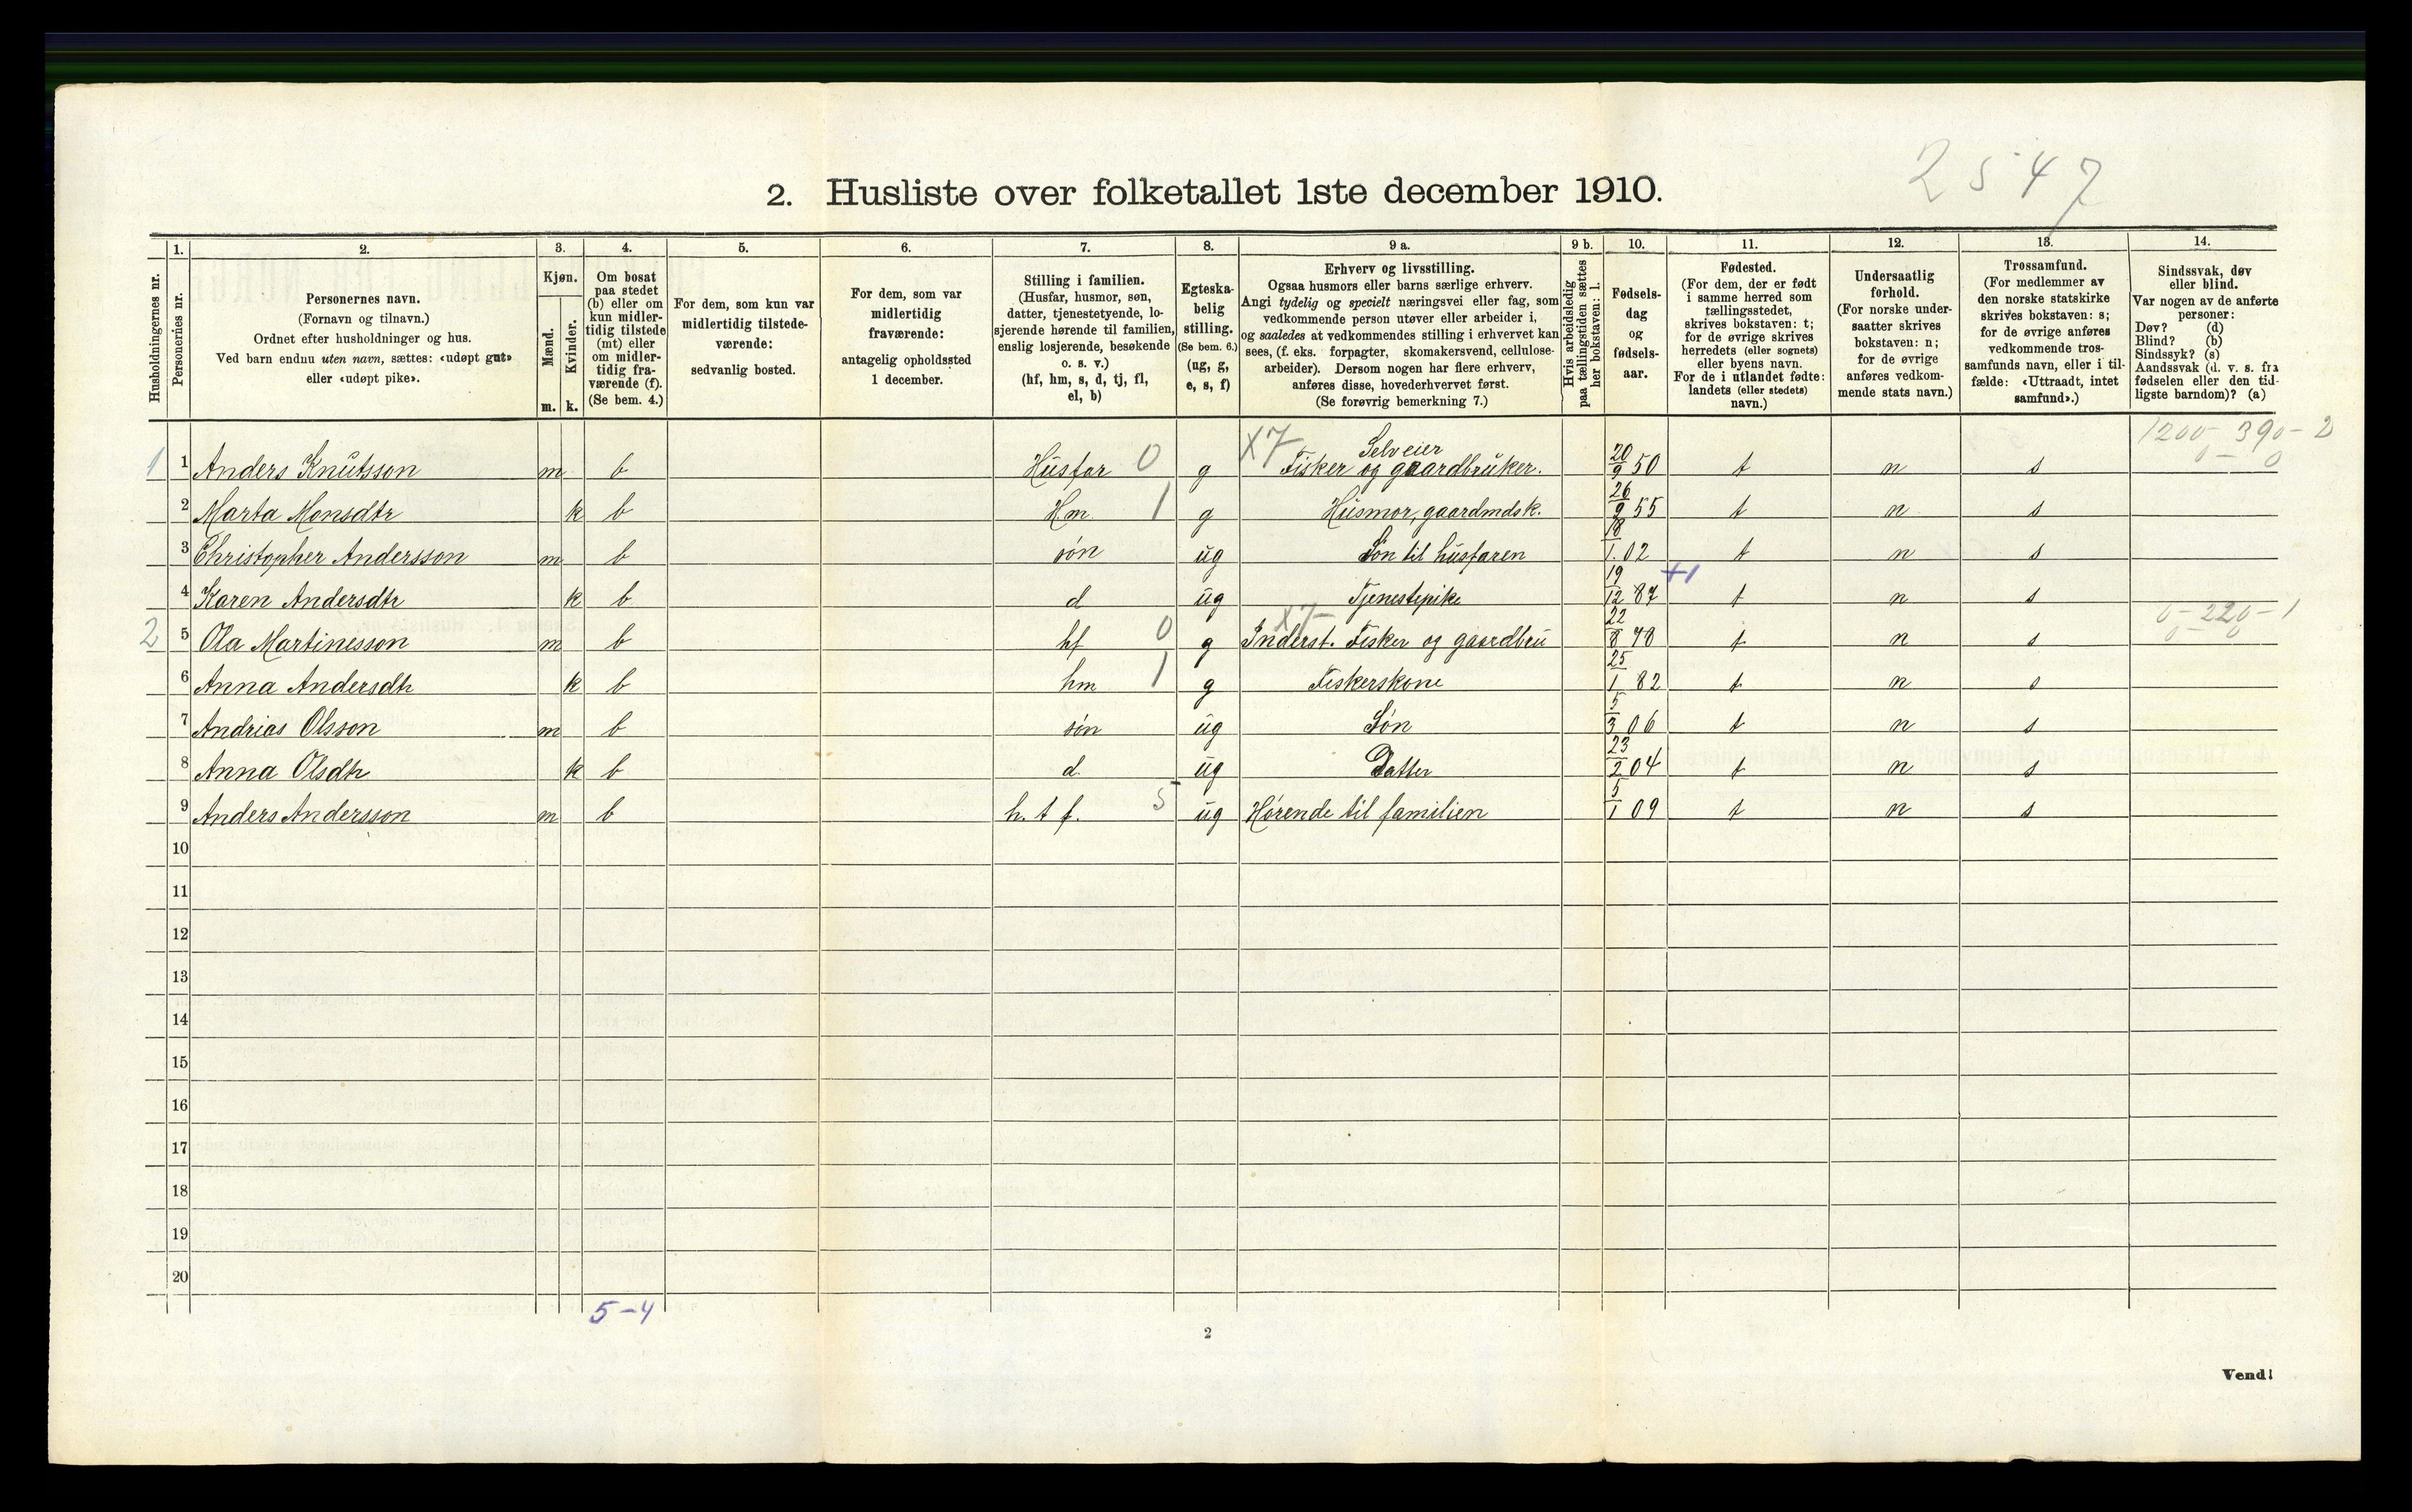 2 5 4 7
2. Husliste over folketallet 1ste december 1910.
Husholdningernes nr.
1.
Personernes nr.
2.
Personernes navn.
(Fornavn og tilnavn.)
Ordnet efter husholdninger og hus.
Ved barn endnu uten navn, sættes: «udøpt gut»
eller «udøpt pike».
3.
Kjøn.
Mænd.
Kvinder.
m. k.
4.
Om bosat
paa stedet
(b) eller om
kun midler-
tidig tilstede
(mt) eller
om midler-
tidig fra-
værende (f).
(Se bem. 4.)
5.
For dem, som kun var
midlertidig tilstede-
værende:
sedvanlig bosted.
6.
For dem, som var
midlertidig
fraværende:
antagelig opholdssted
1 december.
7.
Stilling i familien.
(Husfar, husmor, søn,
datter, tjenestetyende, lo-
sjerende hørende til familien,
enslig losjerende, besøkende
o. s. v.)
(hf, hm, s, d, tj, fl,
el, b)
8.
Egteska-
belig
stilling.
(Se bem. 6.)
(ug, g,
e, s, f)
9 a.
Erhverv og livsstilling.
Ogsaa husmors eller barns særlige erhverv.
Angi tydelig og specielt næringsvei eller fag, som
vedkommende person utøver eller arbeider i,
og saaledes at vedkommendes stilling i erhvervet kan
sees, (f. eks. forpagter, skomakersvend, cellulose-
arbeider). Dersom nogen har flere erhverv,
anføres disse, hovederhvervet først.
(Se forøvrig bemerkning 7.)
9 b.
Hvis arbeidsledig
paa tællingstiden sættes
her bokstaven: l.
10.
Fødsels-
dag
og
fødsels-
aar.
11.
Fødested.
(For dem, der er født
i samme herred som
tællingsstedet,
skrives bokstaven: t;
for de øvrige skrives
herredets (eller sognets)
eller byens navn.
For de i utlandet fødte:
landets (eller stedets)
navn.)
12.
Undersaatlig
forhold.
(For norske under-
saatter skrives
bokstaven: n;
for de øvrige
anføres vedkom-
mende stats navn.)
13.
Trossamfund.
(For medlemmer av
den norske statskirke
skrives bokstaven: s;
for de øvrige anføres
vedkommende tros-
samfunds navn, eller i til-
fælde: «Uttraadt, intet
samfund».)
14.
Sindssvak, døv
eller blind.
Var nogen av de anførte
personer:
Døv? (d)
Blind? (b)
Sindssyk? (s)
Aandssvak (d. v. s. fra
fødselen eller den tid-
ligste barndom)? (a)
1200 - 390 - 2
0 - 0
1 1 Anders Knutsson m b Husfar 0 g X7 Selveier Fisker og gaardbruker. 20/9 50 t n s
2 Marta Monsdtr k b Hm 1 g Husmor, gaardmdsk. 26/9 55 t n s
3 Christopher Andersson m b søn ug Søn til husfaren 18/1 02 t n s
4 Karen Andersdtr k b d ug Tjenestepike 19/12 87 +1 t n s
0 - 220 - 1
0 - 0
2 5 Ola Martinesson m b hf 0 g X7 Inderst. Fisker og gaardbru 22/8 78 t n s
6 Anna Andersdtr k b hm 1 g Fiskerskone 25/1 82 t n s
7 Andrias Olsson m b søn ug Søn 5/3 06 t n s
8 Anna Olsdtr k b d ug Datter 23/2 04 t n s
9 Anders Andersson m b h. t f. 5 ug Hørende til familien 5/1 09 t n s
10
11
12
13
14
15
16
17
18
19
20
5-4
2
Vend!